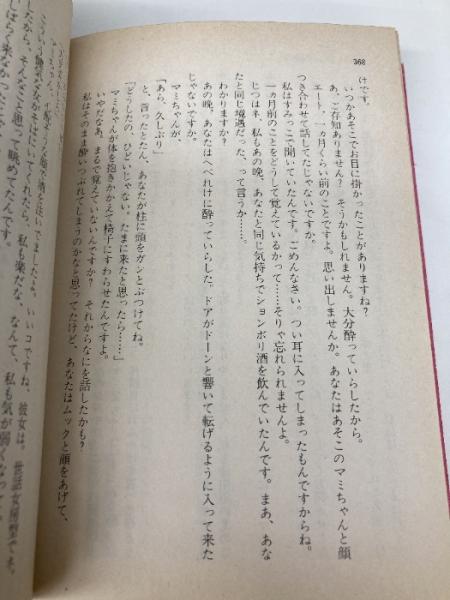 368
けです。
いつかあそこでお目に掛かったことがありますね?
あ、ご存知ありません? そうかもしれません。大分酔っていらしたから。
エート、一ヵ月くらい前のことですよ。思い出しませんか。あなたはあそこのマミちゃんと顔
つき合わせて話してたじゃないですか。
私はすみっこで聞いていたんです。ごめんなさい。つい耳に入ってしまったもんですからね。
一ヵ月前のことをどうして覚えているかって……そりゃ忘れられませんよ。
じつはネ、私もあの晩、あなたと同じ気持ちでションボリ酒を飲んでいたんです。まあ、あな
たと同じ境遇だった、って言うか……。
わかりますか?
あの晩、あなたはへべれけに酔っていらした。ドアがドーンと響いて転げるように入って来た
じゃないですか。
マミちゃんが、
「あら、久しぶり」
と、言ったとたん、あなたが柱に頭をガンとぶつけてね。
「どうしたの、ひどいじゃない。たまに来たと思ったら……」
マミちゃんが体を抱きかかえて椅子にすわらせたんですよ。
いやだなあ。まるで覚えていないんですか? それからなにを話したかも?
私はそのまま酔いつぶれてしまうのかなと思ってたけど、あなたはムックと顔をあげて、
しばらく来なかった
したから、そんなことを思って眺めてたんです。
こういう陽気な女がそばにいてくれたら、私も楽だな、なんて、私も気が弱くなって
酒を注いでましたよ。いいコですね、彼女は。世話女房型でネ。